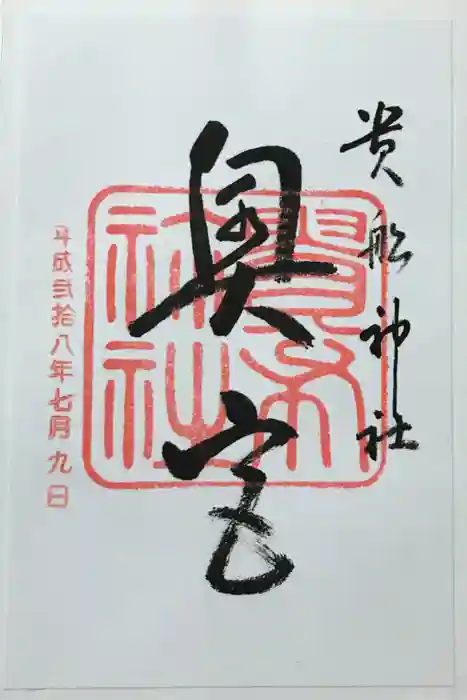 貴船神社
奥宮
平成弐拾八年七月九日